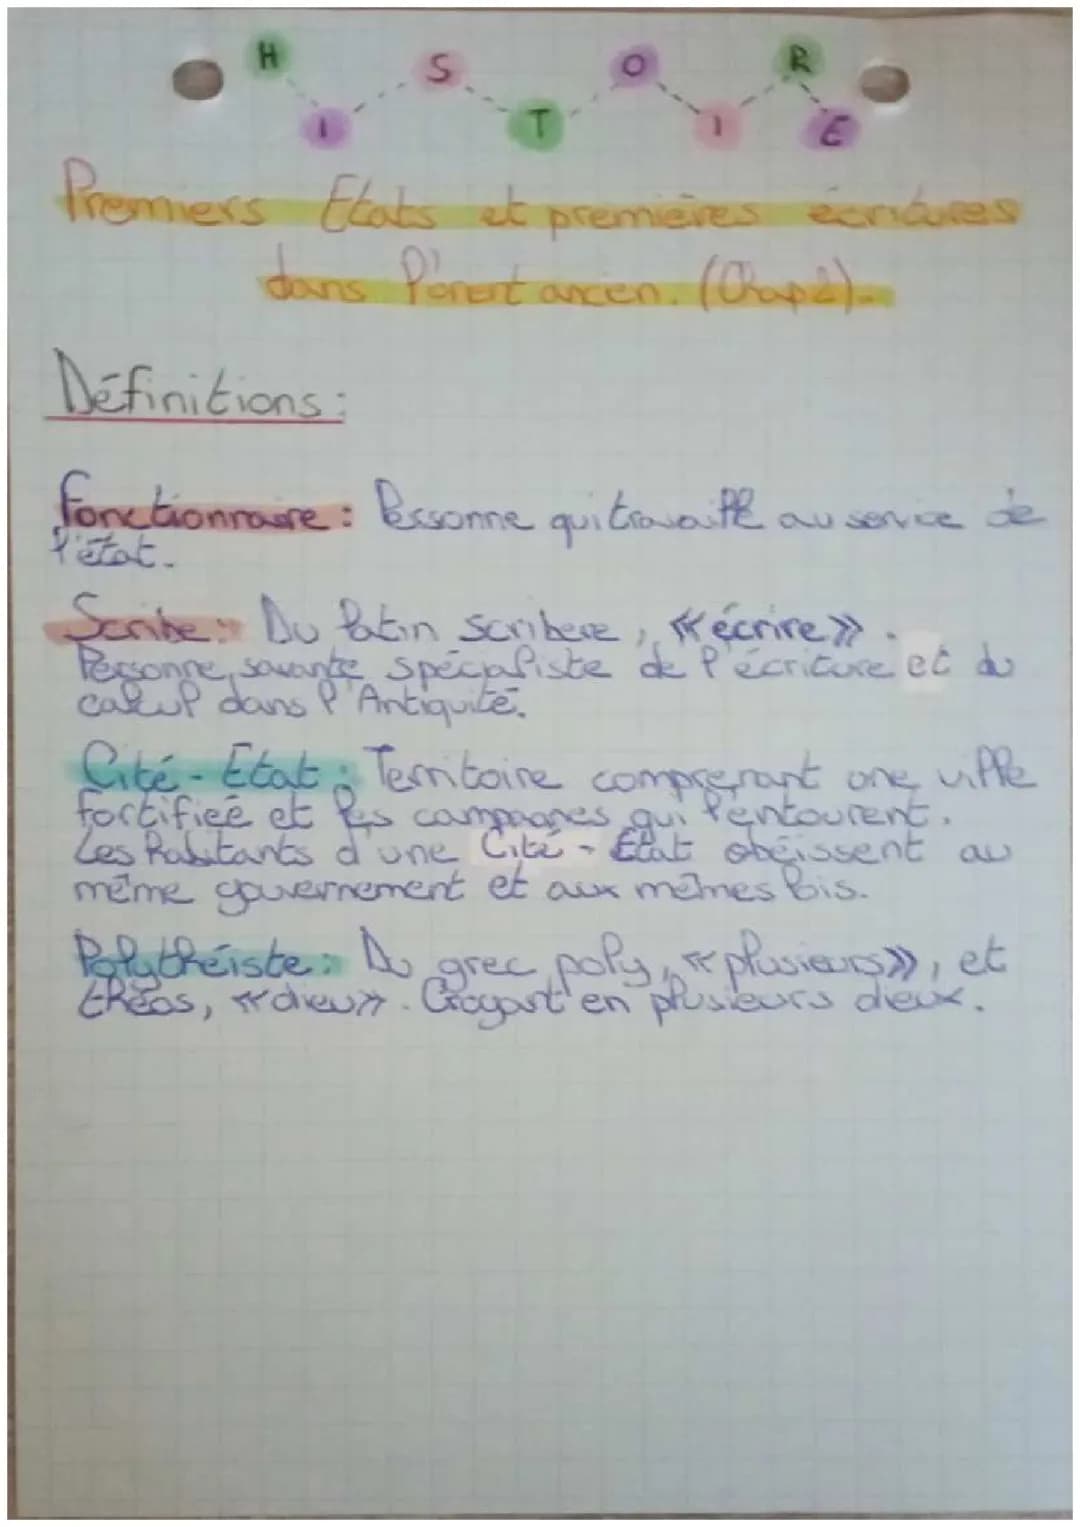 HISTOIRE
Premiers Etats et premières écritures
dans l'orient ancien. (Chap 2).
Définitions :
Fonctionnaire : Personne qui travaille au service de
l'état.
Scribe : Du latin scribere, « écrire ».
Personne savante spécialiste de l'écriture et du
calcul dans l'Antiquité.
Cité-Etat : Territoire comprenant une ville
fortifiée et les campagnes qui l'entourent.
Les habitants d'une Cité-Etat obéissent au
même gouvernement et aux mêmes lois.
Polythéiste : Du grec poly, « plusieurs », et
théos, « dieu ». Croyant en plusieurs dieux.